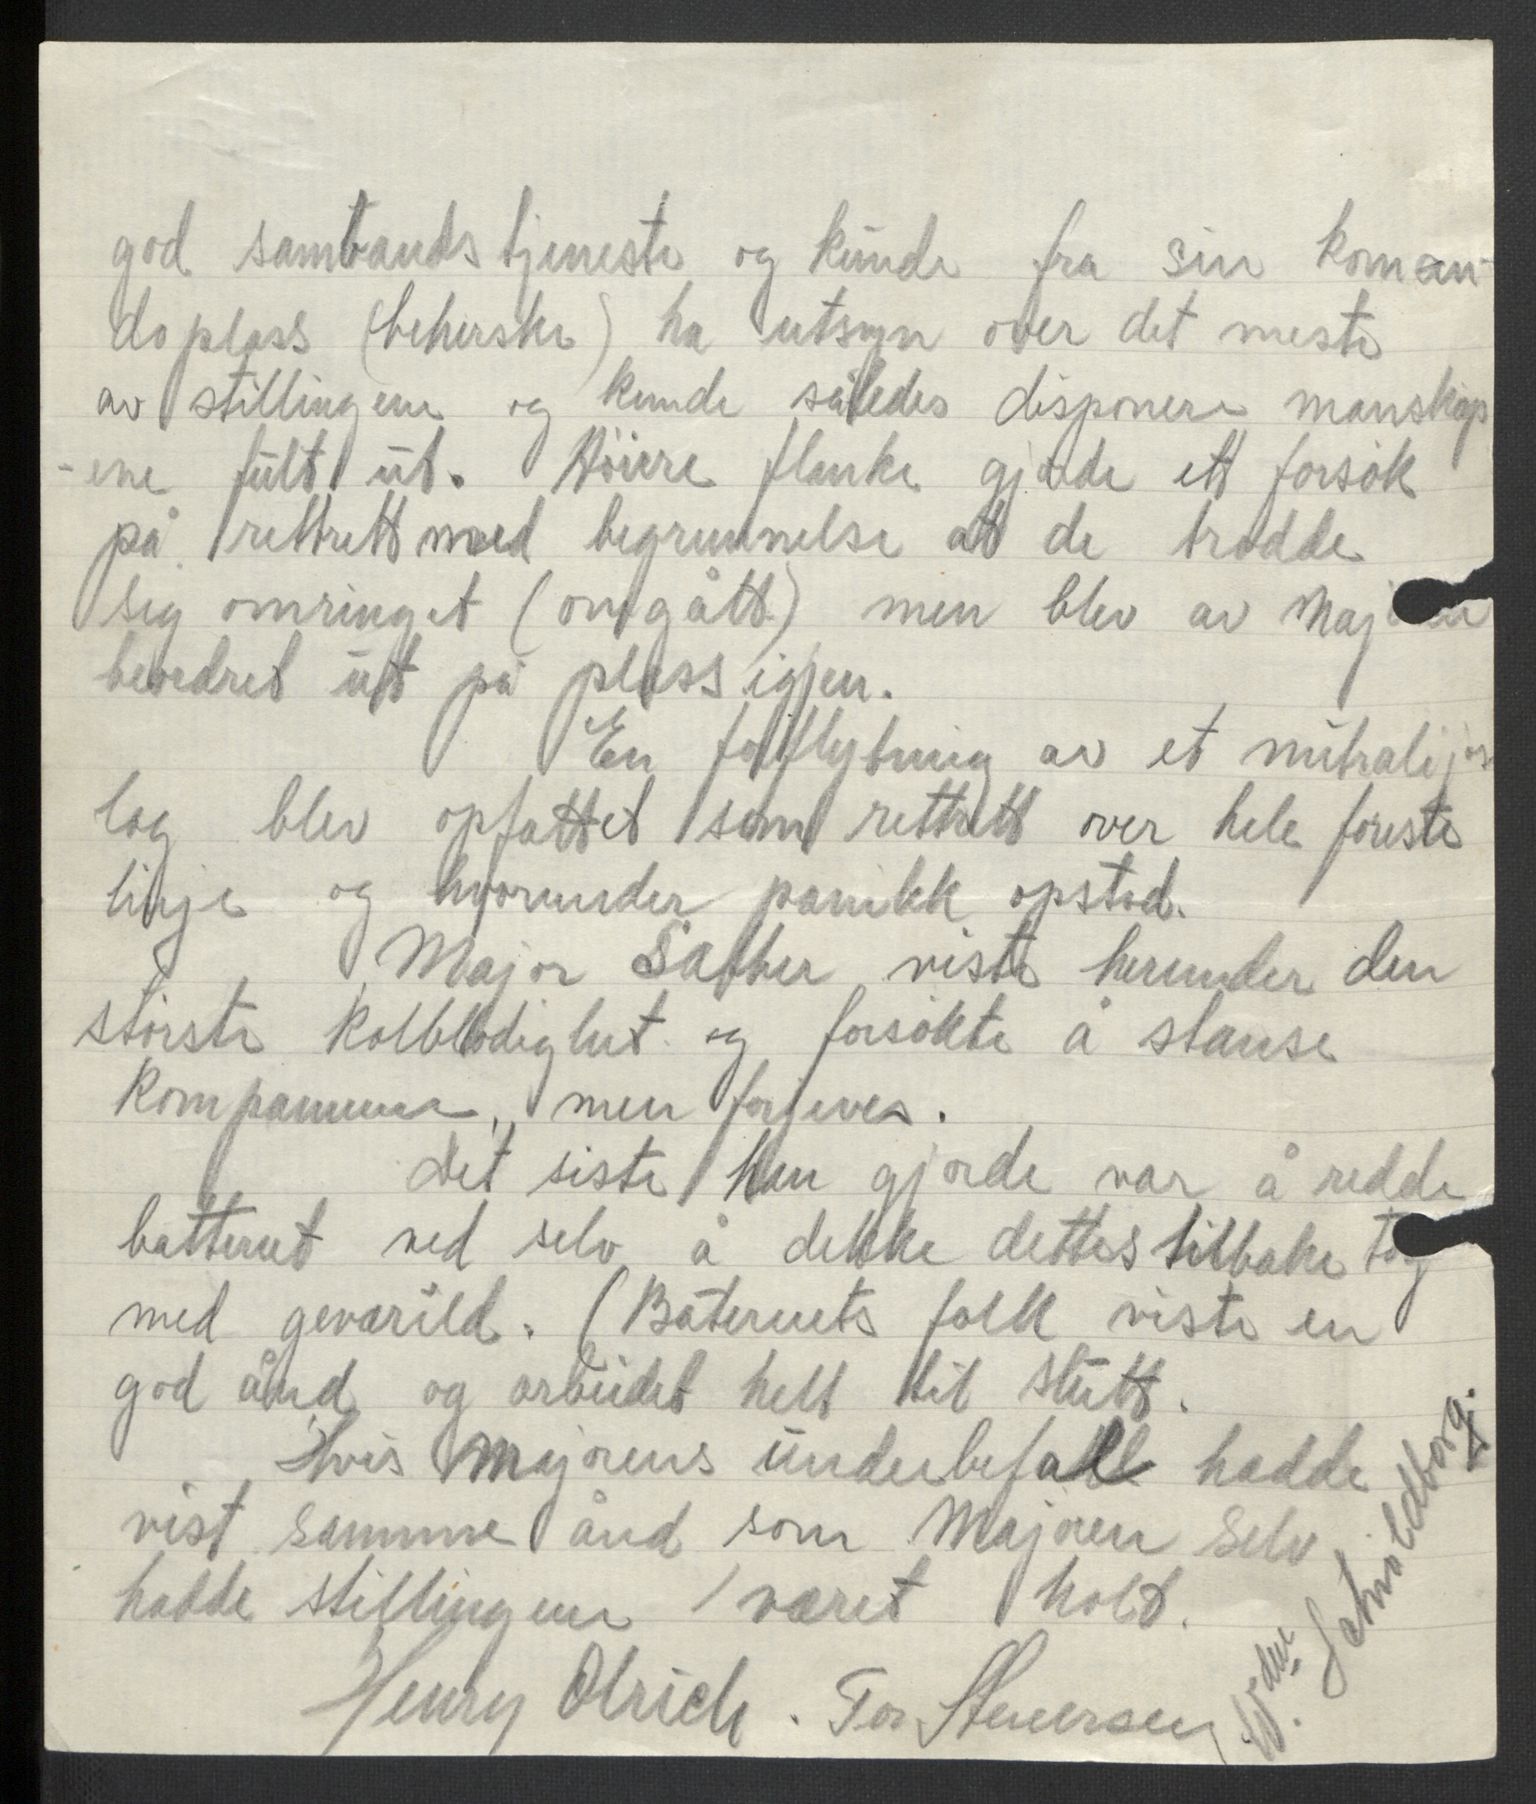 god sambandstjeneste og kunde fra sin koman-
doplass (beherske) ha utsyn over det meste
av stillingene og kunde således disponere manskap
-ene fult ut. Höire flanke gjorde ett forsök
på rettrett med begrunnelse at de trodde
sig omringet (omgått) men blev av Majoren
beordret ut på plass igjen.
En forflytning av et mitraljøs
lag blev opfattet som rettrett over hele föreste
linje og hvorunder panikk opstod.
Major Sæther viste herunder den
störste kolblodighet og forsökte å stanse
kompaniene, men forjeves.
Det siste han gjorde var å redde
batteriet ved selv å dekke dettes tilbake tog
med geværild. (Bateriets folk viste en
god ånd og arbeidet helt til slutt.
Hvis Majorens underbefall hadde
vist samme ånd som Majoren selv
hadde stillingene været holdt.
Henry Olrich. Tor Stenersen
Schioldborg.